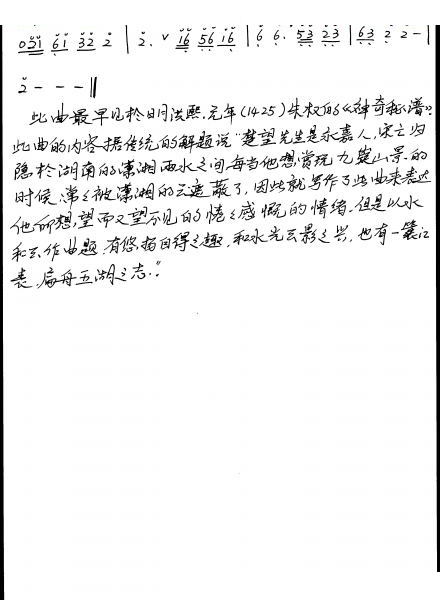 031 61 32 2 | 2. ∨ 16 56 16 | 6 6. 53 23 | 63 2 2 - |
2 - - - ‖
此曲最早见於明洪熙.元年(1425)朱权的《神奇秘谱》.
此曲的内容据传统的解题说"楚望先生是永嘉人,宋亡归
隐於湖南的潇湘两水之间,每当他想赏玩九嶷山景.的
时候.常之被潇湘的云遮蔽了,因此就写作了此曲来表达
他仰想,望而又望不见的情之感慨的情绪.但是以水
和云作曲题.有悠扬自得之趣,和水光云影之兴,也有一蓑江
表,扁舟五湖之志."